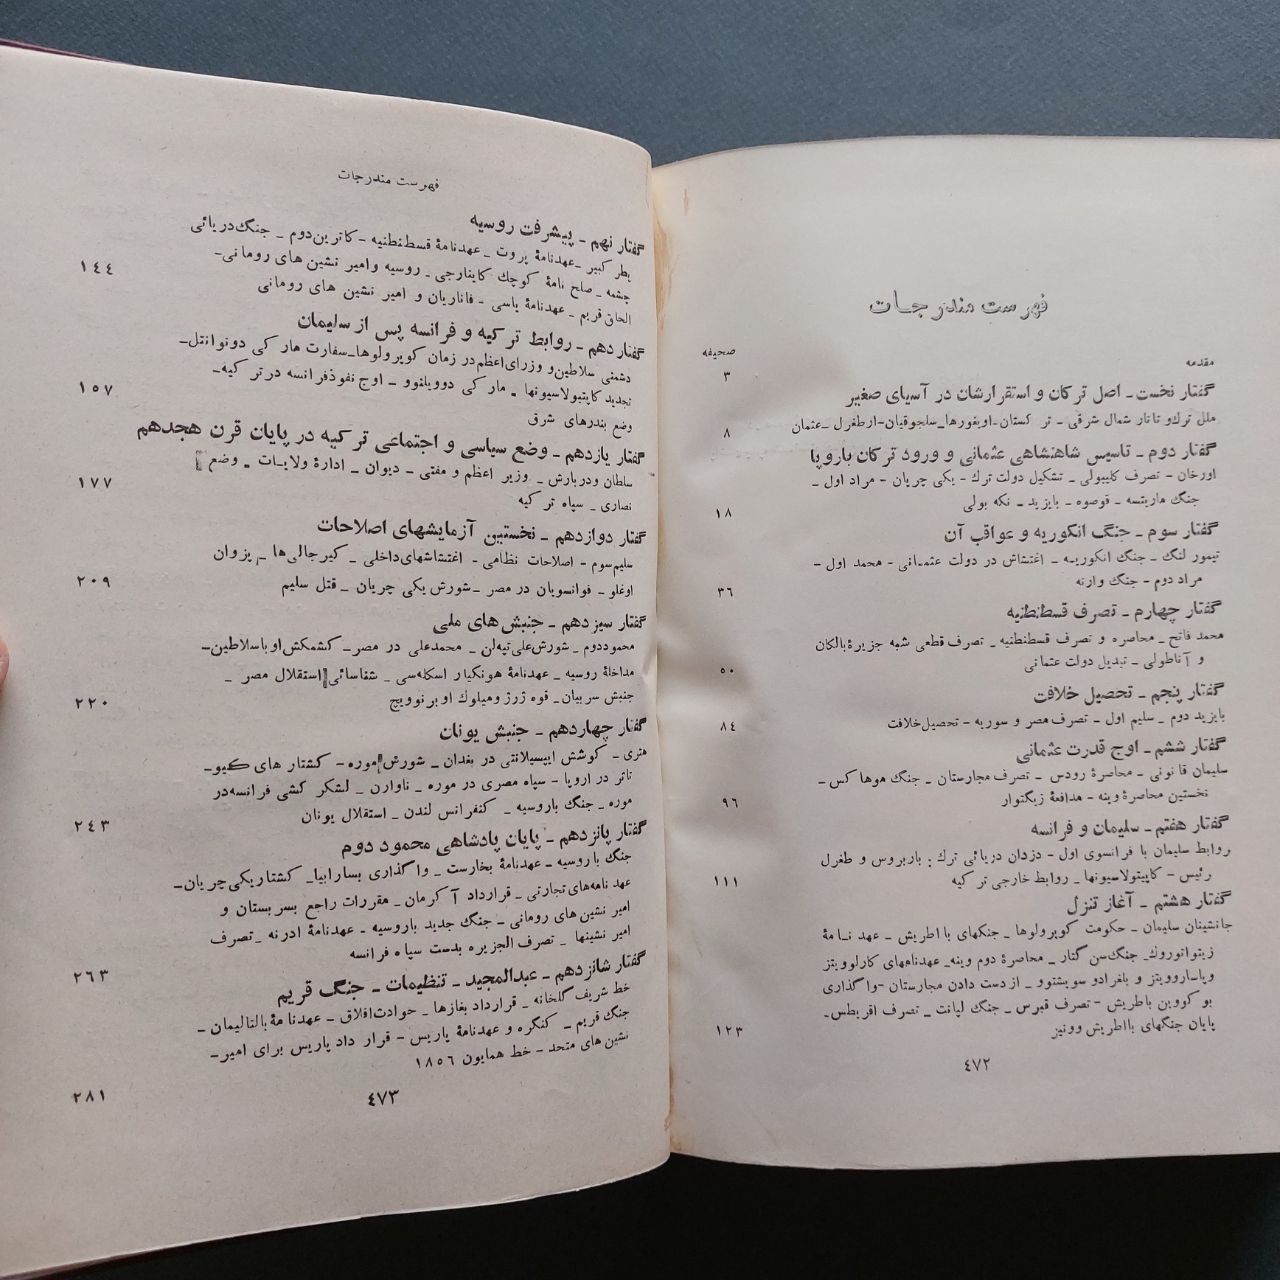 فهرست مندرجات
صحیفه
مقدمه
۳
گفتار نخست- اصل ترکان و استقرارشان در آسیای صغیر
ملل ترك‌و تاتار شمال شرقی - تر کستان-اویغورها_سلجوقیان-ارطغرل _عثمان
۸
گفتار دوم - تاسیس شاهنشاهی عثمانی و ورود ترکان باروپا
اورخان - تصرف کلیبولی - تشکیل دولت ترك - یکی چریان - مراد اول -
جنگ ماریتسه - قوصوه - بایزید - نکه بولی
۱۸
گفتار سوم - جنگ انکوریه و عواقب آن
تیمور لنگ - جنگ انکوریه- اغتشاش در دولت عثمانی - محمد اول -
مراد دوم - جنگ وارنه
۳۶
گفتار چهارم - تصرف قسطنطنیه
محمد فاتح - محاصره و تصرف قسطنطنیه_ تصرف قطعی شبه جزیرهٔ بالکان
و آناطولی - تبدیل دولت عثمانی
۵۰
گفتار پنجم - تحصیل خلافت
بایزید دوم - سلیم اول - تصرف مصر و سوریه - تحصیل‌خلافت
۸٤
گفتار ششم - اوج قدرت عثمانی
سلیمان قانونی - محاصرهٔ رودس - تصرف مجارستان - جنگ موهاکس-
نخستین محاصرهٔ وینه - مدافعهٔ زیگتوار
۹۶
گفتار هفتم - سلیمان و فرانسه
روابط سلیمان با فرانسوی اول - دزدان دریائی ترك : باربروس و طغرل
رئیس - کاپیتولاسیونها _ روابط خارجی تر کیه
۱۱۱
گفتار هشتم - آغاز تنزل
جانشینان سلیمان - حکومت کوپرولوها_ جنگهای با اطریش - عهد نامهٔ
زیتواتوروك_ جنگ‌سن گتار _ محاصرهٔ دوم وینه_ عهدنامهای کارلوویتز
وپاساروویتز و بلغرادو سویشتوو _ از دست دادن مجارستان -واگذاری
بو کووین باطریش - تصرف قبرس - جنگ لپانت _ تصرف اقریطس-
پایان جنگهای بااطریش وونیز
۱۲۳
٤۷۲
فهرست مندرجات
گفتار نهم - پیشرفت روسیه
پطر کبیر -عهدنامهٔ پروت _ عهدنامهٔ قسطنطنیه -کاترین‌دوم _ جنگ‌دریائی
چشمه _ صلح نامهٔ کوچك کاینارجی_ روسیه وامیر نشین های رومانی-
الحاق قریم - عهدنامهٔ یاسی - فاناریان و امیر نشین های رومانی
۱٤٤
گفتار دهم - روابط تر کیه و فرانسه پس از سلیمان
دشمنی سلاطین‌و وزرای‌اعظم‌در زمان کوپرولوها_سفارت مار کی دونوانتل-
تجدید کاپیتولاسیونها - مار کی دوویلنوو - اوج نفوذفرانسه درتر کیه-
وضع بندرهای شرق
۱۵۷
گفتار یازدهم - وضع سیاسی و اجتماعی تر کیه در پایان قرن هجدهم
سلطان ودربارش _ وزیر اعظم و مفتی - دیوان - ادارهٔ ولایات _ وضع
نصاری - سپاه تر کیه
۱۷۷
گفتار دوازدهم - نخستین آزمایشهای اصلاحات
سلیم‌سوم - اصلاحات نظامی - اغتشاشهای‌داخلی _ کیرجالی‌ها _ پزوان
اوغلو - فرانسویان در مصر _ شورش‌یکی چریان _ قتل سلیم
۲۰۹
گفتار سیزدهم - جنبش های ملی
محموددوم _ شورش‌علی‌تپه‌لن _ محمدعلی در مصر_ کشمکش‌اوباسلاطین-
مداخلهٔ روسیه _ عهدنامهٔ هونکیار اسکله‌سی _ شناسائی استقلال مصر _
جنبش سربیان_ قره ژرژ ومیلوك اوبرنوویچ
۲۲۰
گفتار چهاردهم - جنبش یونان
هتری - کوشش ایپسیلانتی در بغدان _ شورش موره- کشتار های کیو-
تاثر در اروپا - سپاه مصری در موره - ناوارن _ لشکر کشی فرانسه‌در
موره _ جنگ باروسیه _ کنفرانس لندن _ استقلال یونان
۲٤۳
گفتار پانزدهم - پایان پادشاهی محمود دوم
جنگ باروسیه _ عهدنامهٔ بخارست _ واگذاری بسارابیا_ کشتاریکی‌چریان-
عهد نامه‌های تجارتی - قرارداد آ کرمان - مقررات راجع بسربستان و
امیر نشین های رومانی - جنگ جدید باروسیه - عهدنامهٔ ادرنه _ تصرف
امیر نشینها _ تصرف الجزیره بدست سپاه فرانسه
۲۶۳
گفتار شانزدهم - عبدالمجید - تنظیمات - جنگ قریم
خط شریف گلخانه - قرارداد بغازها _ حوادث‌افلاق - عهدنامهٔ بالتالیمان-
جنگ قریم - کنگره و عهدنامهٔ پاریس - قرار داد پاریس برای امیر-
نشین های متحد - خط همایون ۱۸۵۶
۲۸۱
٤۷۳